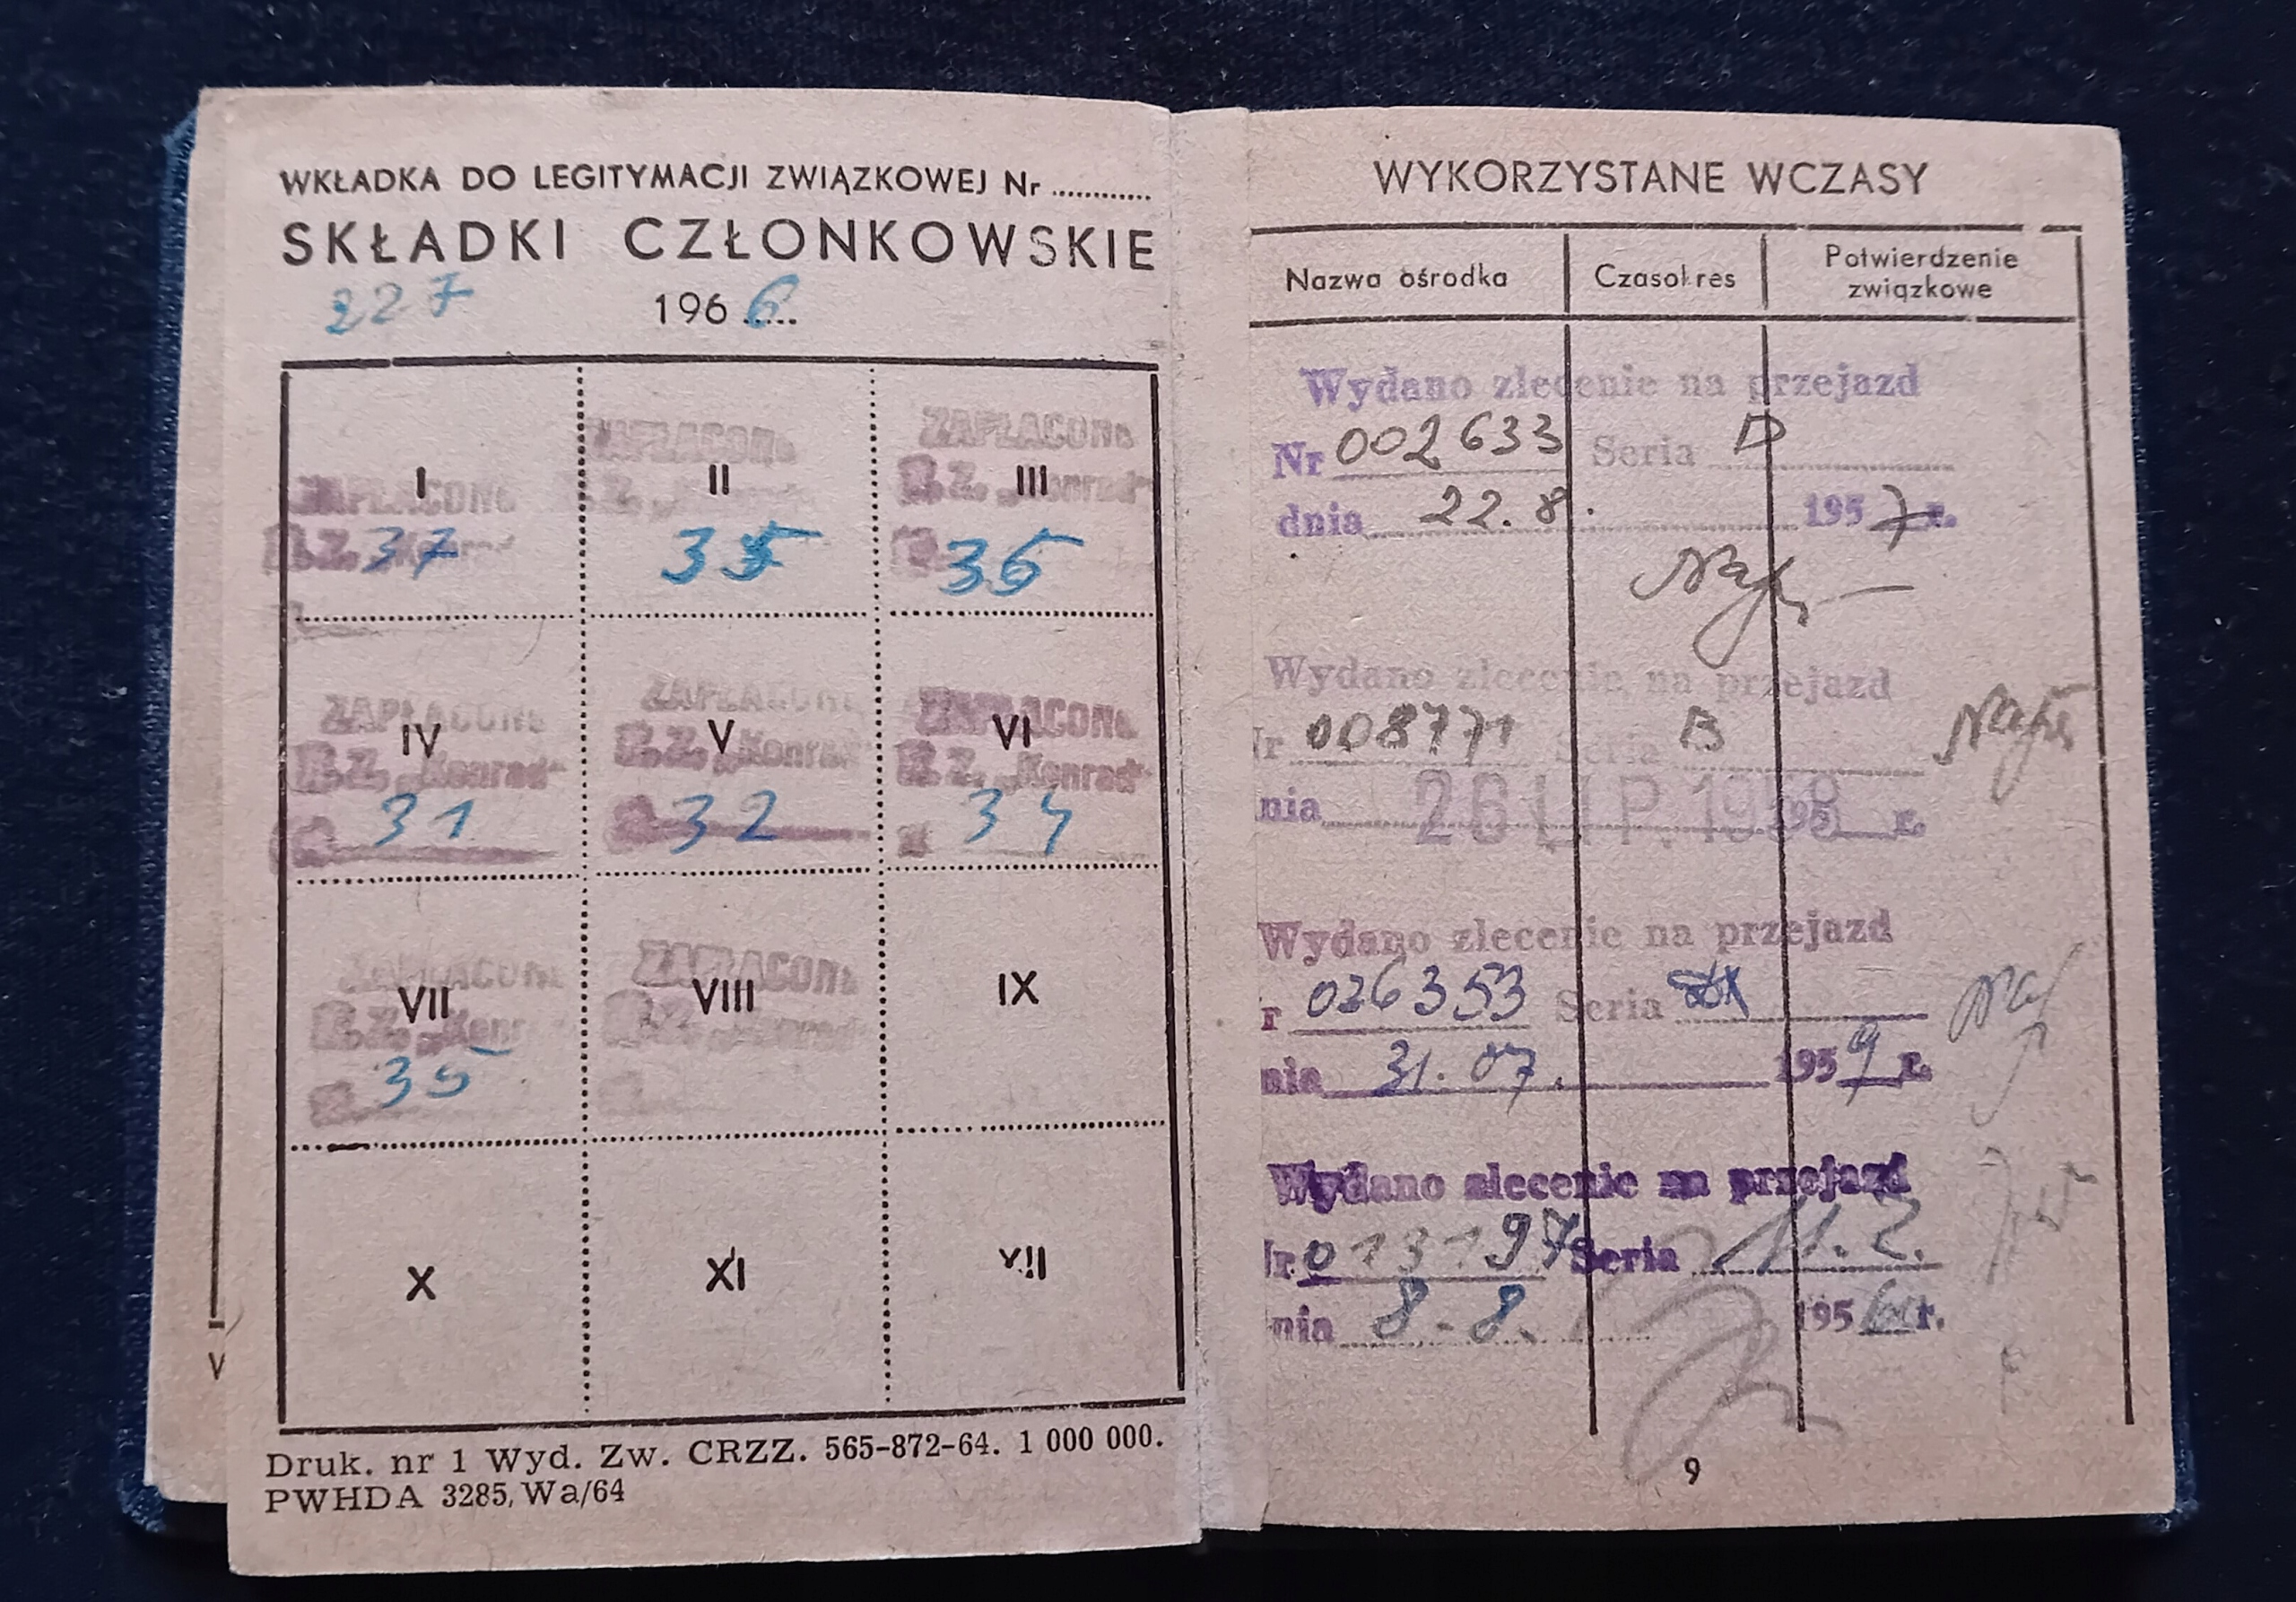 WKŁADKA DO LEGITYMACJI ZWIĄZKOWEJ Nr ............
SKŁADKI CZŁONKOWSKIE
227 196 6
I II III
ZAPŁACONO ZAPŁACONO ZAPŁACONO
R.Z. „Konrad" R.Z. „Konrad" R.Z. „Konrad"
37 35 36
IV V VI
ZAPŁACONO ZAPŁACONO ZAPŁACONO
R.Z. „Konrad" R.Z. „Konrad" R.Z. „Konrad"
31 32 34
VII VIII IX
ZAPŁACONO ZAPŁACONO
R.Z. „Konrad" R.Z. „Konrad"
35
X XI XII
Druk. nr 1 Wyd. Zw. CRZZ. 565-872-64. 1 000 000.
PWHDA 3285, Wa/64
V
WYKORZYSTANE WCZASY
Nazwa ośrodka Czasokres Potwierdzenie
związkowe
Wydano zlecenie na przejazd
Nr 002633 Seria D
dnia 22.8. 1957 r.
Wydano zlecenie na przejazd
Nr 008771 Seria B
nia 26 LIP. 1958 195 r.
Wydano zlecenie na przejazd
r 026353 Seria
nia 31.07. 1959 r.
Wydano zlecenie na przejazd
Nr 013197 Seria
nia 8.8. 195 r.
9